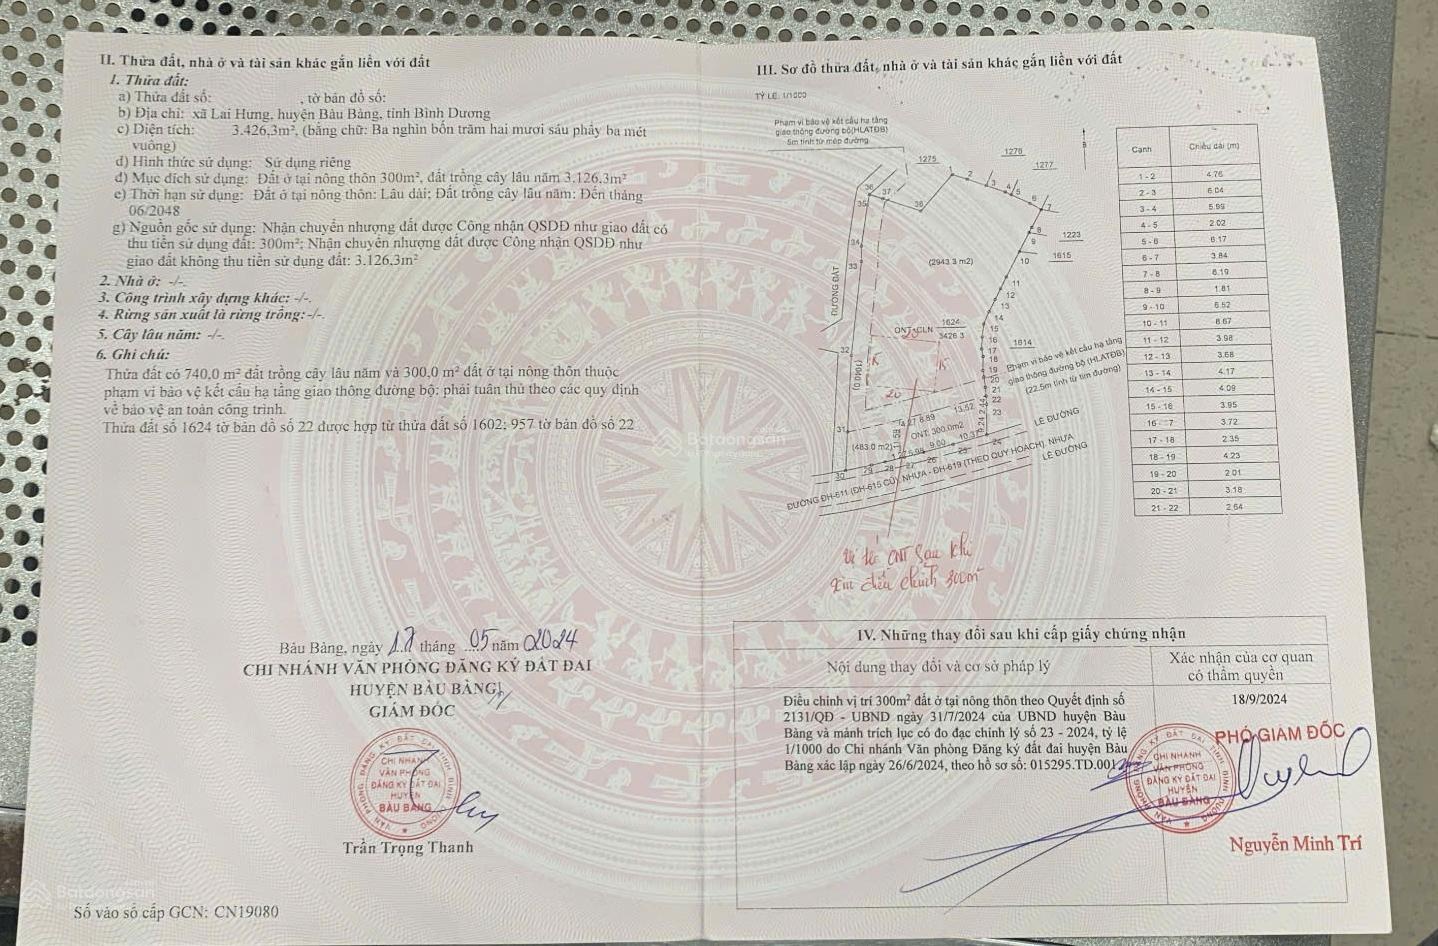 II. Thửa đất, nhà ở và tài sản khác gắn liền với đất
1. Thửa đất:
a) Thửa đất số: , tờ bản đồ số:
b) Địa chỉ: xã Lai Hưng, huyện Bàu Bàng, tỉnh Bình Dương
c) Diện tích: 3.426,3m², (bằng chữ: Ba nghìn bốn trăm hai mươi sáu phẩy ba mét
vuông)
d) Hình thức sử dụng: Sử dụng riêng
đ) Mục đích sử dụng: Đất ở tại nông thôn 300m², đất trồng cây lâu năm 3.126,3m²
e) Thời hạn sử dụng: Đất ở tại nông thôn: Lâu dài; Đất trồng cây lâu năm: Đến tháng
06/2048
g) Nguồn gốc sử dụng: Nhận chuyển nhượng đất được Công nhận QSDĐ như giao đất có
thu tiền sử dụng đất: 300m²; Nhận chuyển nhượng đất được Công nhận QSDĐ như
giao đất không thu tiền sử dụng đất: 3.126,3m²
2. Nhà ở: -/-.
3. Công trình xây dựng khác: -/-.
4. Rừng sản xuất là rừng trồng: -/-.
5. Cây lâu năm: -/-.
6. Ghi chú:
Thửa đất có 740,0 m² đất trồng cây lâu năm và 300,0 m² đất ở tại nông thôn thuộc
phạm vi bảo vệ kết cấu hạ tầng giao thông đường bộ; phải tuân thủ theo các quy định
về bảo vệ an toàn công trình.
Thửa đất số 1624 tờ bản đồ số 22 được hợp từ thửa đất số 1602; 957 tờ bản đồ số 22
Bàu Bàng, ngày 17 tháng 05 năm 2024
CHI NHÁNH VĂN PHÒNG ĐĂNG KÝ ĐẤT ĐAI
HUYỆN BÀU BÀNG
GIÁM ĐỐC
CHI NHÁNH
VĂN PHÒNG
ĐĂNG KÝ ĐẤT ĐAI
HUYỆN
BÀU BÀNG
Trần Trọng Thanh
Số vào sổ cấp GCN: CN19080
III. Sơ đồ thửa đất, nhà ở và tài sản khác gắn liền với đất
TỶ LỆ: 1/1000
Phạm vi bảo vệ kết cấu hạ tầng
giao thông đường bộ(HLATĐB)
5m tính từ mép đường
1275
1276
1277
1223
1615
1614
(2943.3 m2)
ĐƯỜNG ĐẤT
ONT+CLN 1624
3426.3
Phạm vi bảo vệ kết cấu hạ tầng
giao thông đường bộ (HLATĐB)
(22.5m tính từ tim đường)
20
ONT: 300.0m2
(483.0 m2)
LỀ ĐƯỜNG
ĐƯỜNG ĐH-611 (ĐH-615 CŨ) NHỰA - ĐH-619 (THEO QUY HOẠCH) NHỰA
LỀ ĐƯỜNG
Vị trí ONT sau khi
xin điều chỉnh 300m²
Cạnh Chiều dài (m)
1 - 2 4.76
2 - 3 6.04
3 - 4 5.99
4 - 5 2.02
5 - 6 6.17
6 - 7 3.84
7 - 8 6.19
8 - 9 1.81
9 - 10 6.52
10 - 11 8.67
11 - 12 3.98
12 - 13 3.68
13 - 14 4.17
14 - 15 4.09
15 - 16 3.95
16 - 17 3.72
17 - 18 2.35
18 - 19 4.23
19 - 20 2.01
20 - 21 3.18
21 - 22 2.64
IV. Những thay đổi sau khi cấp giấy chứng nhận
Nội dung thay đổi và cơ sở pháp lý
Xác nhận của cơ quan
có thẩm quyền
Điều chỉnh vị trí 300m² đất ở tại nông thôn theo Quyết định số
2131/QĐ - UBND ngày 31/7/2024 của UBND huyện Bàu
Bàng và mảnh trích lục có đo đạc chỉnh lý số 23 - 2024, tỷ lệ
1/1000 do Chi nhánh Văn phòng Đăng ký đất đai huyện Bàu
Bàng xác lập ngày 26/6/2024, theo hồ sơ số: 015295.TD.001
18/9/2024
PHÓ GIÁM ĐỐC
CHI NHÁNH
VĂN PHÒNG
ĐĂNG KÝ ĐẤT ĐAI
HUYỆN
BÀU BÀNG
Nguyễn Minh Trí
Batdongsan
Batdongsan